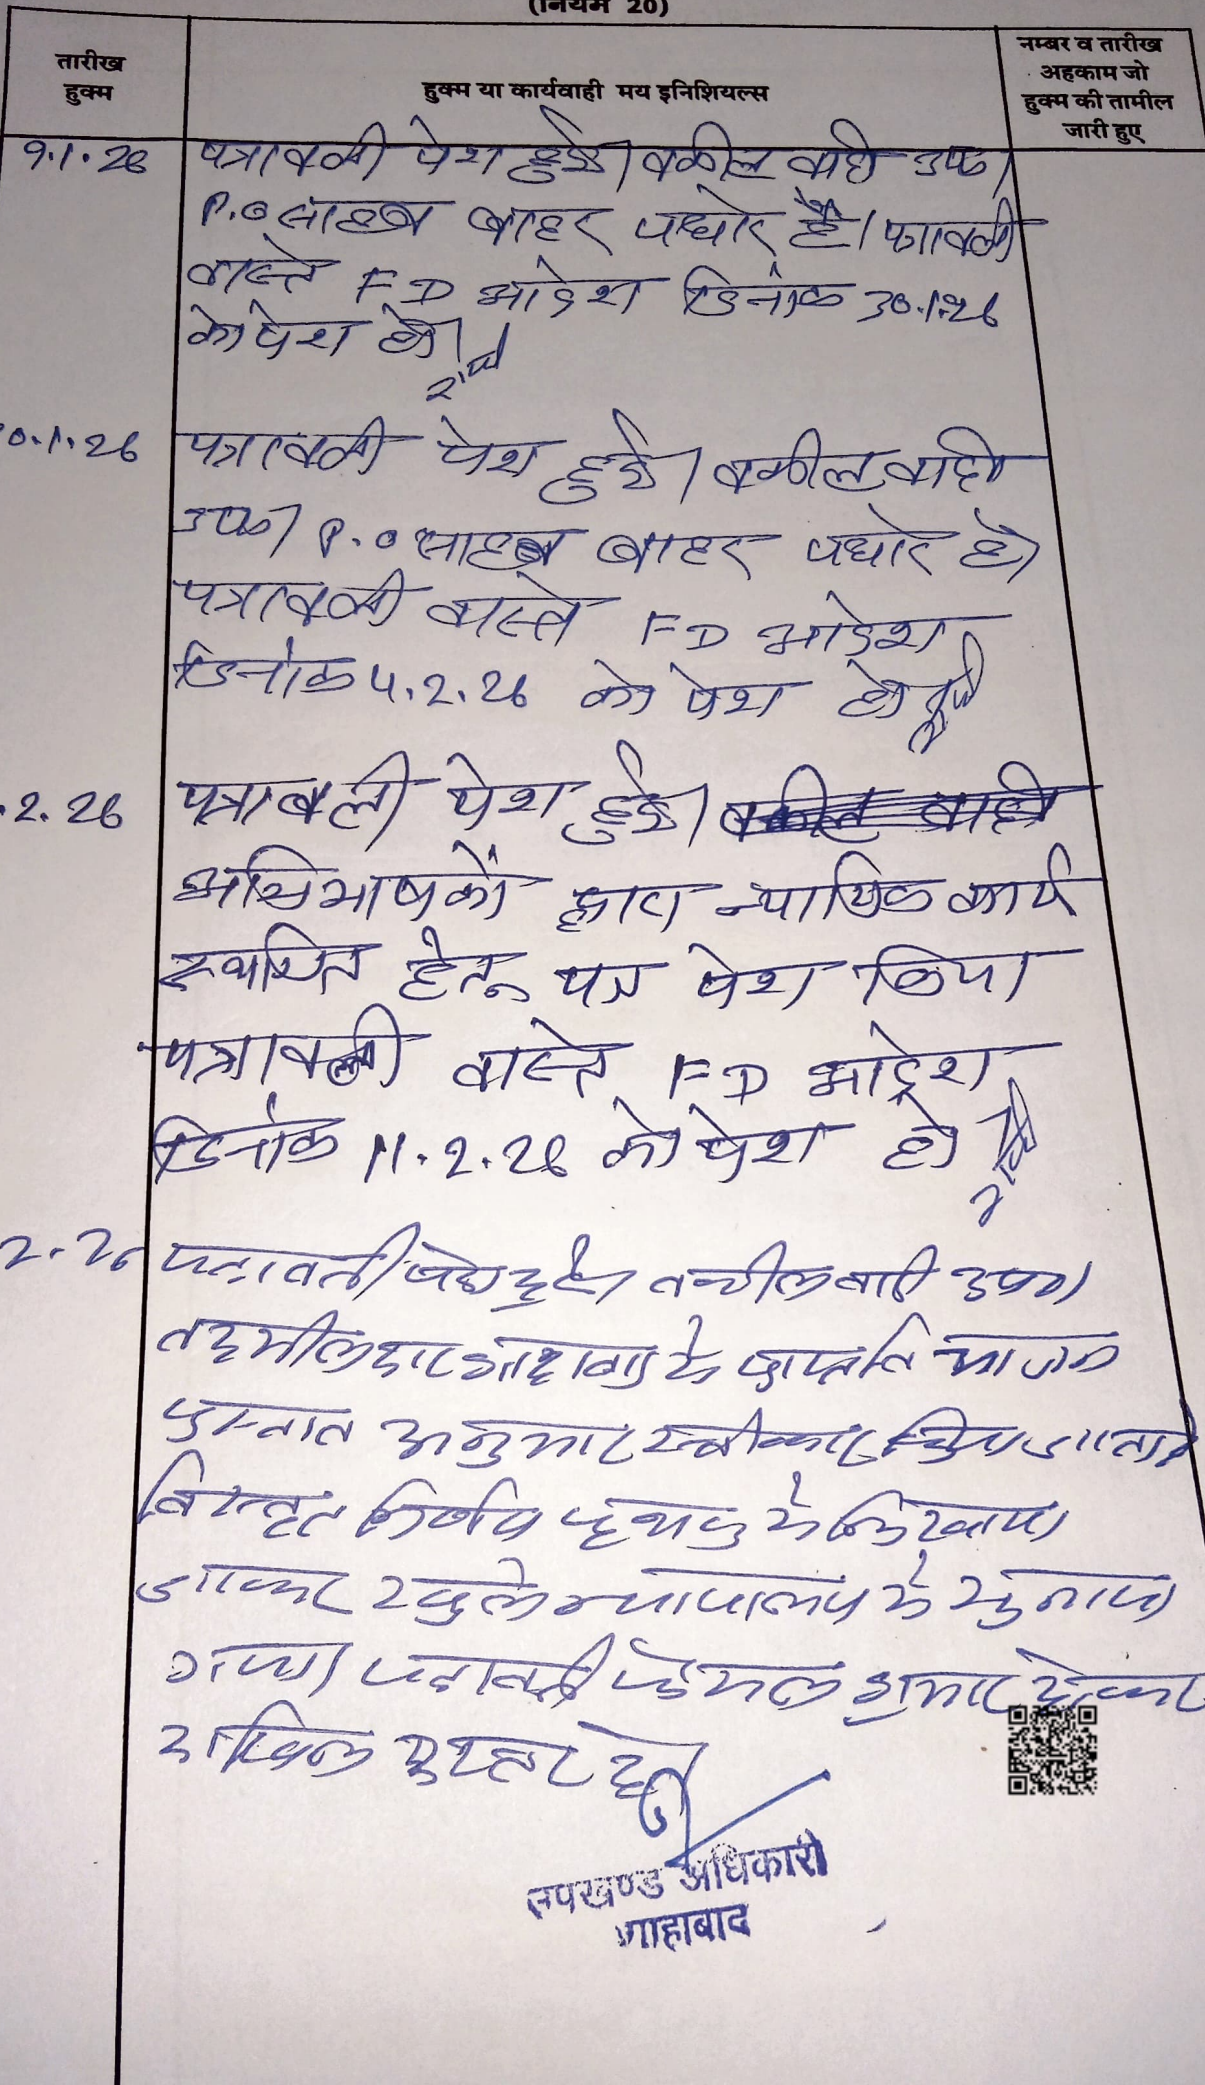 (नियम 20)
तारीख
हुक्म
हुक्म या कार्यवाही मय इनिशियल्स
नम्बर व तारीख
अहकाम जो
हुक्म की तामील
जारी हुए
9.1.26 पत्रावली पेश हुई। वकील वादी उप०।
P.O साहब बाहर पधारे है। पत्रावली
वास्ते FD आदेश दिनांक 30.1.26
को पेश हो।
0.1.26 पत्रावली पेश हुई। वकील वादी
उप०। P.O साहब बाहर पधारे है।
पत्रावली वास्ते FD आदेश
दिनांक 4.2.26 को पेश हो
.2.26 पत्रावली पेश हुई। वकील वादी
अभिभाषकों द्वारा न्यायिक कार्य
स्थगित हेतू पत्र पेश किया
पत्रावली वास्ते FD आदेश
दिनांक 11.2.26 को पेश हो
2.26 पत्रावली पेश हुई। वकील वादी उप०।
तहसीलदार शाहाबाद के
प्रस्ताव अनुसार स्वीकार किया जाता है
विस्तृत निर्णय पृथक से लिखाया
जाकर खुले न्यायालय में सुनाया
गया। पत्रावली फैसल शुमार होकर
दाखिल दफ्तर हो
उपखण्ड अधिकारी
शाहाबाद